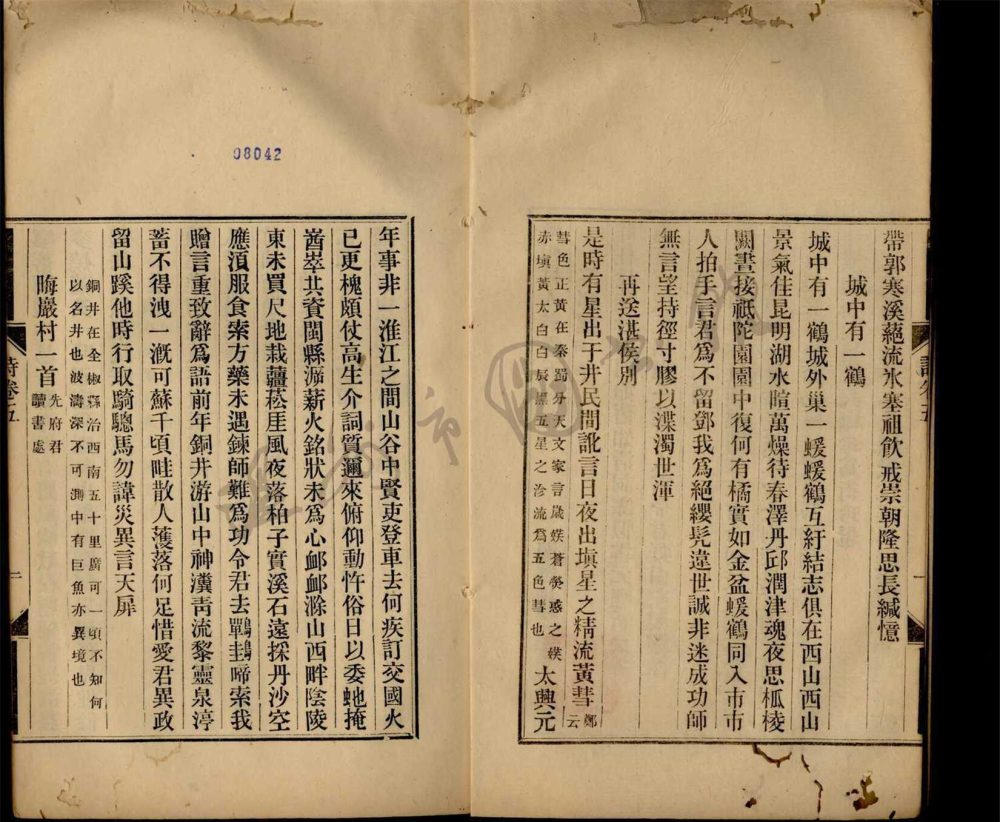 帶郭寒溪蕝流氷塞祖飲戒崇朝隆思長緘憶
城中有一鶴
城中有一鶴城外巢一蝯蝯鶴互紆結志俱在西山西山
景氣佳昆明湖水暄萬燥待春澤丹邱潤津魂夜思柧棱
闕晝接祇陀園園中復何有橘實如金盆蝯鶴同入市市
人拍手言君爲不留鄧我爲絕纓髠違世誠非迷成功師
無言望持徑寸膠以渫濁世渾
再送湛侯別
是時有星出于井民間訛言日夜出塡星之精流黃彗鄭云
彗色正黃在秦蜀分天文家言歲蒼熒惑之
赤塡黃太白白辰黑五星之沴流爲五色彗也
太興元
詩卷五
一
年事非一淮江之間山谷中賢吏登車去何疾訂交國火
已更槐頗仗高生介詞質邇來俯仰動忤俗日以委蛇掩
崷崒共資閩縣瀕薪火銘狀未爲心卹卹滁山西畔陰陵
東未買尺地栽虇菘崖風夜落柏子實溪石遠採丹沙空
應湏服食索方藥未遇鍊師難爲功令君去鸅鴣啼索我
贈言重致辭爲語前年銅井游山中神瀵靑流黎靈泉渟
蓄不得洩一漑可蘇千頃畦散人濩落何足惜愛君異政
留山蹊他時行取騎驄馬勿諱災異言天屏
銅井在全椒縣治西南五十里廣可一頃不知何
以名井也波濤深不可測中有巨魚亦異境也
晦巖村一首
先府君
讀書處
詩卷五
一
08042